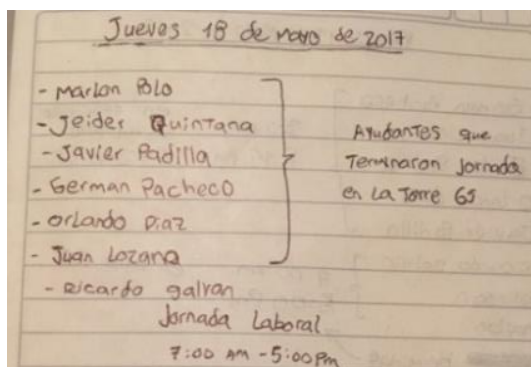 Jueves 18 de mayo de 2017
- Marlon Polo
- Jeider Quintana
- Javier Padilla
- German Pacheco
- Orlando Diaz
- Juan Lozano
- Ricardo galvan
Ayudantes que
Terminaron Jornada
en La Torre 65
Jornada Laboral
7:00 AM - 5:00 Pm